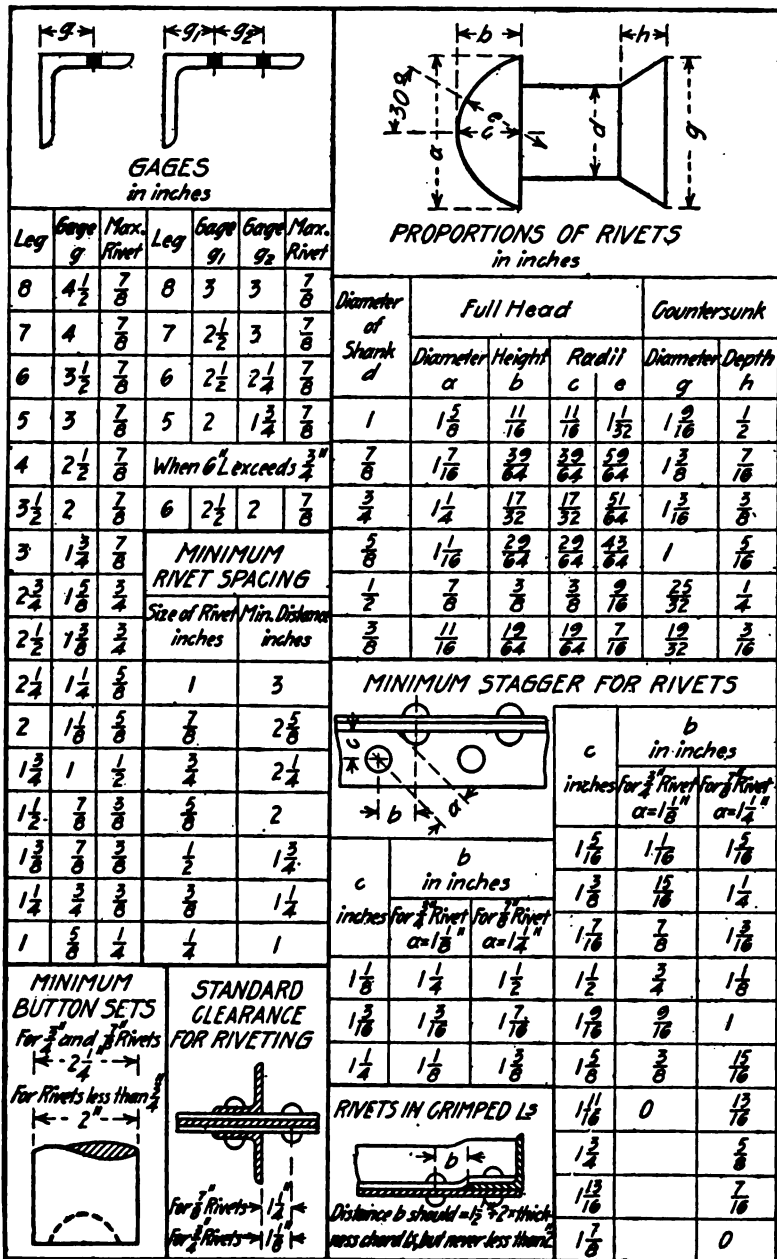 g g1 g2
GAGES
in inches
Leg Gage g Max. Rivet Leg Gage g1 Gage g2 Max. Rivet
8 4 1/2 7/8 8 3 3 7/8
7 4 7/8 7 2 1/2 3 7/8
6 3 1/2 7/8 6 2 1/2 2 1/4 7/8
5 3 7/8 5 2 1 3/4 7/8
4 2 1/2 7/8 When 6" L exceeds 3/4"
3 1/2 2 7/8 6 2 1/2 2 7/8
3 1 3/4 7/8
2 3/4 1 5/8 3/4
2 1/2 1 3/8 3/4
2 1/4 1 1/4 5/8
2 1 1/8 5/8
1 3/4 1 1/2
1 1/2 7/8 3/8
1 3/8 7/8 3/8
1 1/4 3/4 3/8
1 5/8 1/4
MINIMUM
RIVET SPACING
Size of Rivet Min. Distance
inches inches
1 3
7/8 2 5/8
3/4 2 1/4
5/8 2
1/2 1 3/4
3/8 1 1/4
1/4 1
MINIMUM
BUTTON SETS
For 3/4" and 7/8" Rivets
2 1/4"
For Rivets less than 3/4"
2"
STANDARD
CLEARANCE
FOR RIVETING
For 7/8" Rivets 1 1/4"
For 3/4" Rivets 1 1/8"
b h
30° a c e d g
PROPORTIONS OF RIVETS
in inches
Diameter of Shank d Full Head Countersunk
Diameter a Height b Radii c e Diameter g Depth h
1 1 5/8 11/16 11/16 1 1/32 1 9/16 1/2
7/8 1 7/16 39/64 39/64 59/64 1 3/8 7/16
3/4 1 1/4 17/32 17/32 51/64 1 3/16 3/8
5/8 1 1/16 29/64 29/64 43/64 1 5/16
1/2 7/8 3/8 3/8 9/16 25/32 1/4
3/8 11/16 19/64 19/64 7/16 19/32 3/16
MINIMUM STAGGER FOR RIVETS
c b a
c inches b in inches
For 3/4" Rivet a=1 1/8" For 7/8" Rivet a=1 1/4"
1 1/8 1 1/4 1 1/2
1 3/16 1 3/16 1 7/16
1 1/4 1 1/8 1 3/8
c inches b in inches
For 3/4" Rivet a=1 1/8" For 7/8" Rivet a=1 1/4"
1 5/16 1 1/16 1 5/16
1 3/8 15/16 1 1/4
1 7/16 7/8 1 3/16
1 1/2 3/4 1 1/8
1 9/16 9/16 1
1 5/8 3/8 15/16
1 11/16 0 13/16
1 3/4 5/8
1 13/16 7/16
1 7/8 0
RIVETS IN CRIMPED Ls
b
Distance b should = 1 1/2" + 2 × thick-
ness chord Ls, but never less than 2"